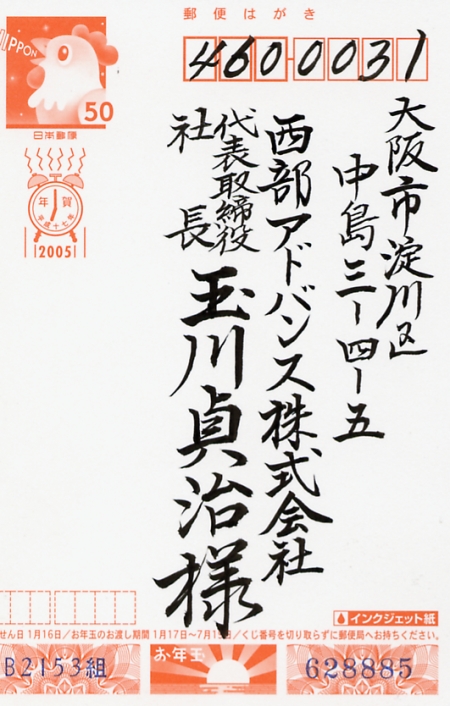 郵便はがき
460-0031
NIPPON
50
日本郵便
年賀
平成十七年
2005
大阪市淀川区
中島三ー四ー五
西部アドバンス株式会社
代表取締役
社長
玉川貞治様
インクジェット紙
せん日 1月16日/お年玉のお渡し期間 1月17日〜7月15日/くじ番号を切り取らずに郵便局へお持ちください。
B2153組
お年玉
628885